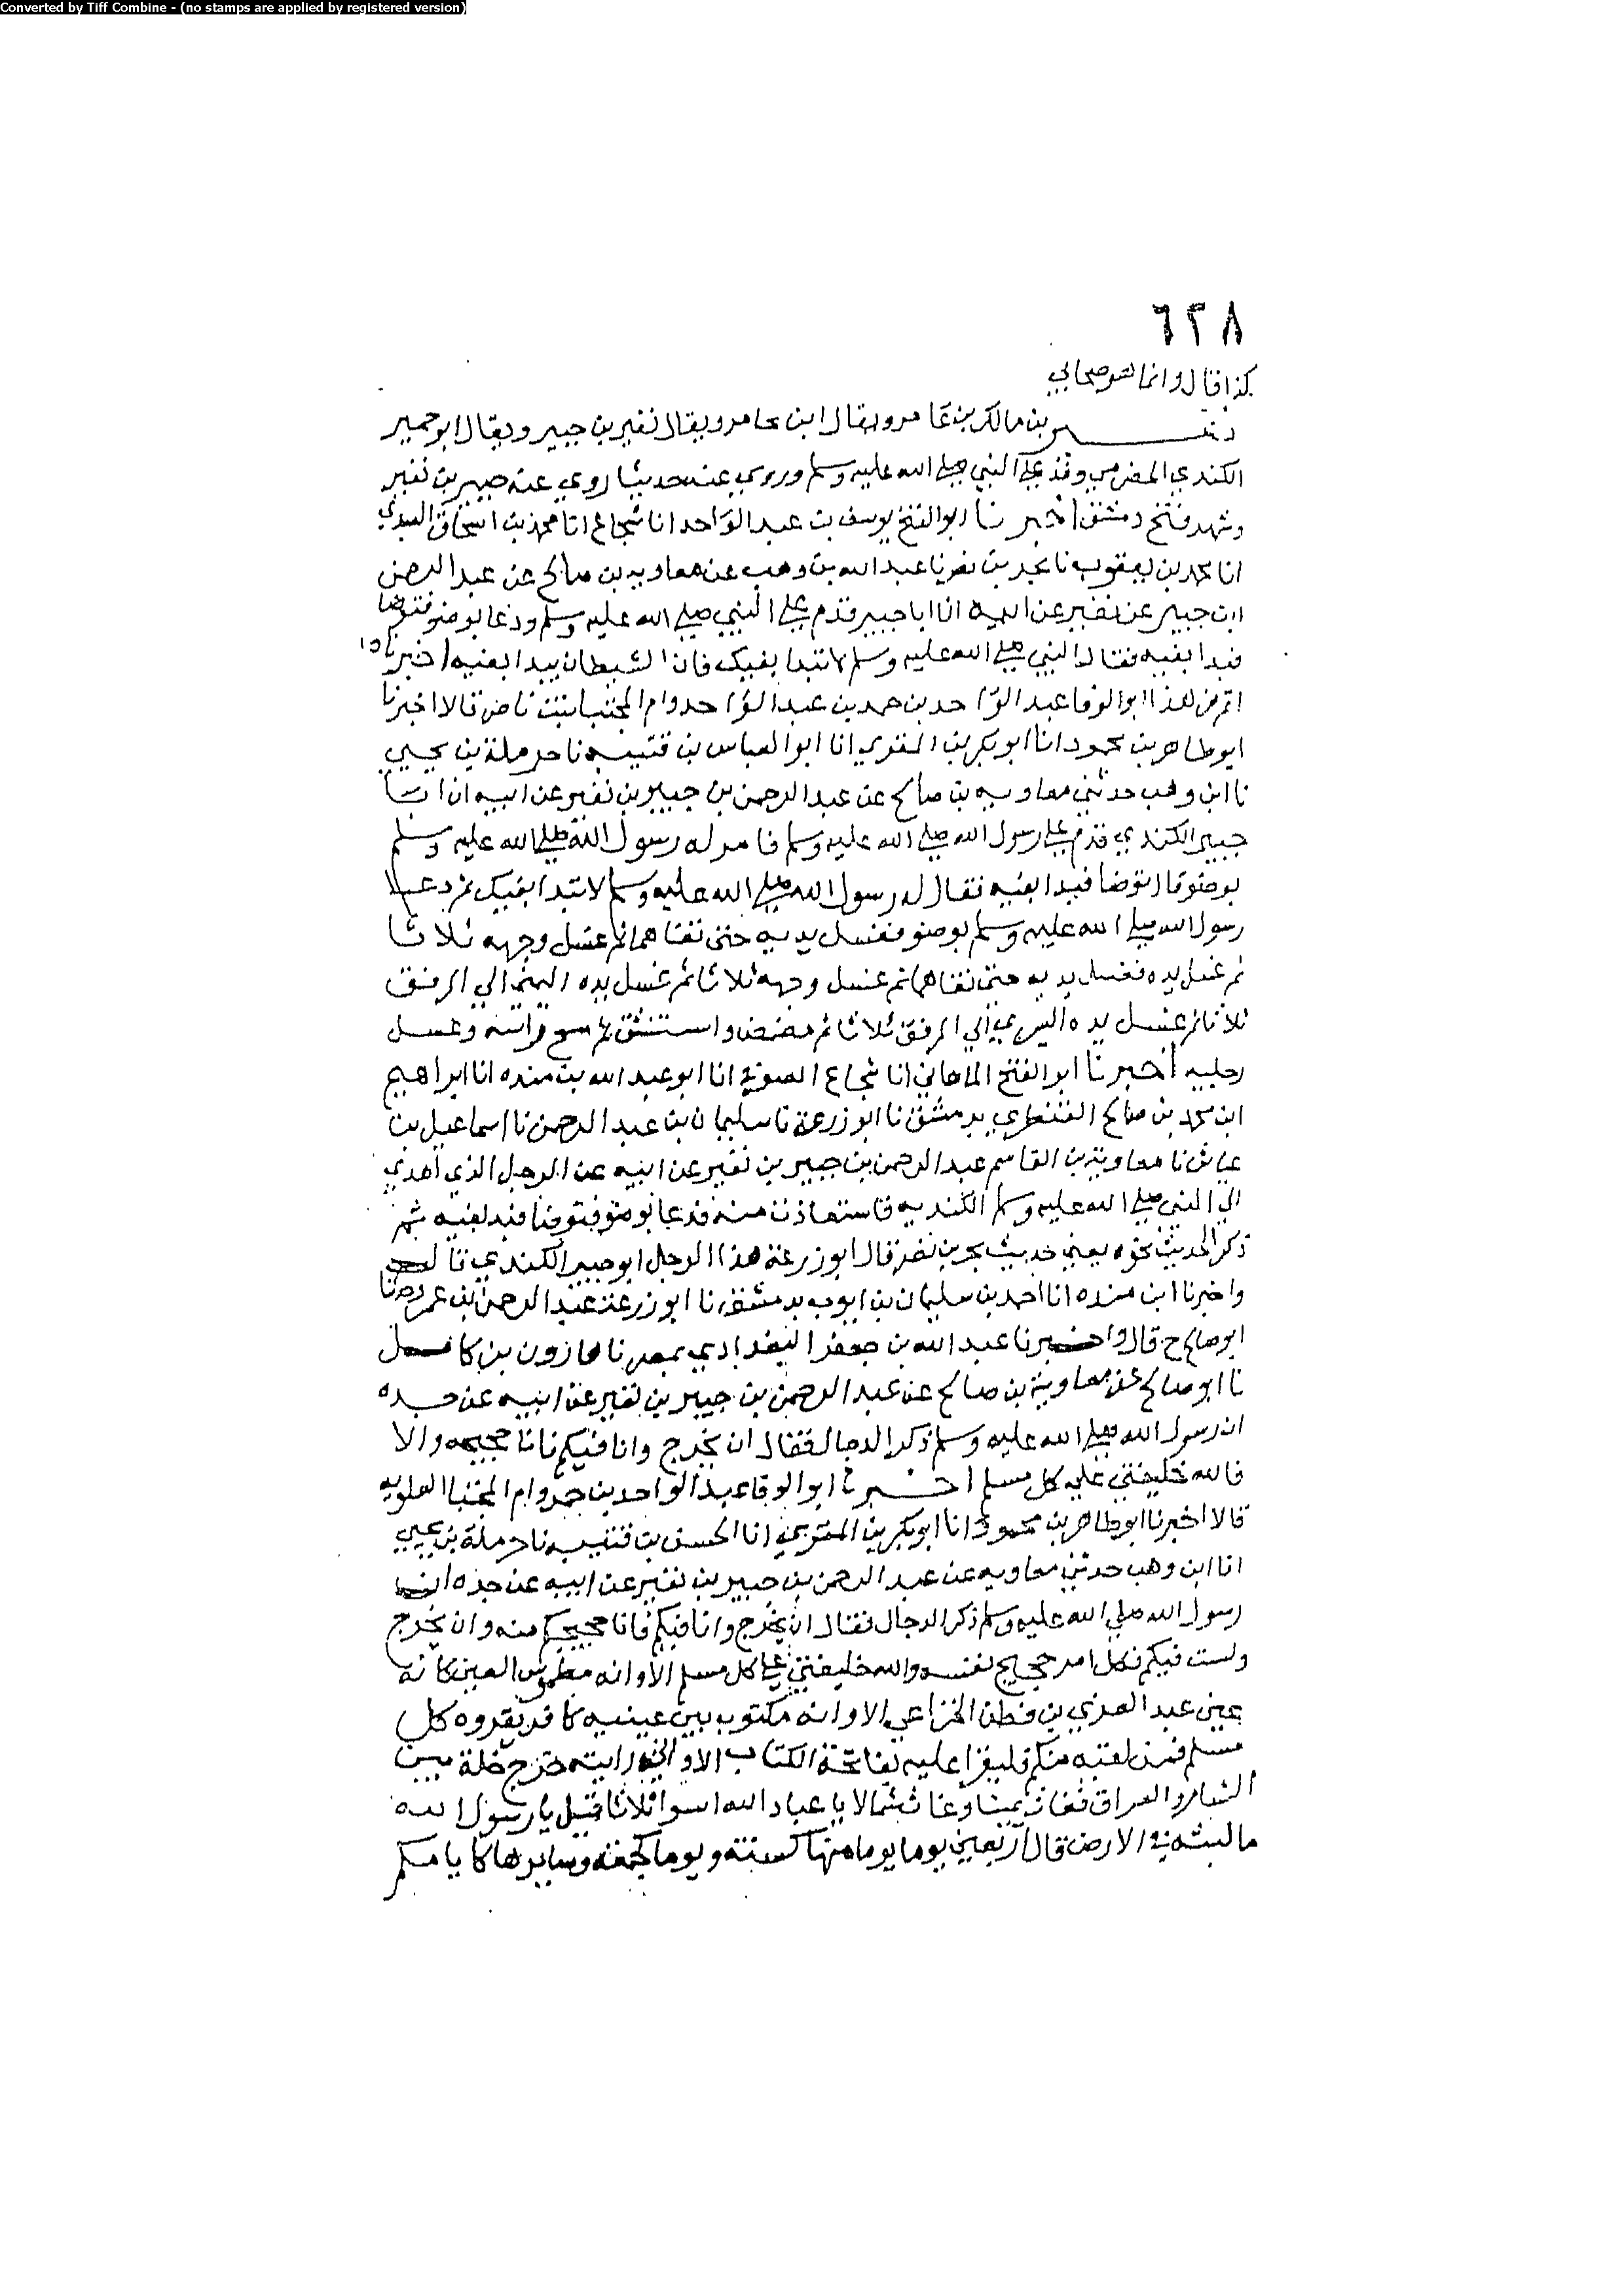 Converted by Tiff Combine - (no stamps are applied by registered version)
٦٢٨
كذا قال وانما هو صحابي
نفير بن مالك بن عامر ويقال ابن عامر ويقال نفير بن جبير ويقال ابو جبير
الكندي الحضرمي وفد علي النبي صلي الله عليه وسلم وروي عنه حديثا روي عنه جبير بن نفير
وشهد فتح دمشق اخبرنا ابو الفتح يوسف بن عبد الواحد انا شجاع انا محمد بن اسحاق العبدي
انا محمد بن يعقوب نا بحر بن نصر نا عبد الله بن وهب عن معاويه بن صالح عن عبد الرحمن
ابن جبير عن نفير عن ابيه ان ابا جبير قدم علي النبي صلي الله عليه وسلم ودعا بوضو فتوضا
فبدا بفيه فقال النبي صلي الله عليه وسلم لا تبدا بفيك فان الشيطان يبدا بفيه اخبرنا
اتم من هذا ابو الوفا عبد الواحد بن حمد بن عبد الواحد وام المجتبا بنت ناصر قالا اخبرنا
ابو طاهر بن محمود انا ابو بكر بن المقري انا ابو العباس بن قتيبه نا حرملة بن يحيي
نا ابن وهب حدثني معاويه بن صالح عن عبد الرحمن بن جبير بن نفير عن ابيه ان ابا
جبير الكندي قدم علي رسول الله صلي الله عليه وسلم فامر له رسول الله صلي الله عليه وسلم
بوضو قال توضا فبدا بفيه فقال له رسول الله صلي الله عليه وسلم لا تبدا بفيك ثم دعا
رسول الله صلي الله عليه وسلم بوضو فغسل يديه حتى نقاهما ثم غسل وجهه ثلاثا
ثم غسل يده فغسل يديه حتى نقاهما ثم غسل وجهه ثلاثا ثم غسل يده اليمني الي المرفق
ثلاثا ثم غسل يده اليسري الي المرفق ثلاثا ثم مضمض واستنشق ثم مسح براسه وغسل
رجليه اخبرنا ابو الفتح الماهاني انا شجاع الصوفي انا ابو عبد الله بن منده انا ابراهيم
ابن محمد بن صالح القنطري بدمشق نا ابو زرعة نا سليمان بن عبد الرحمن نا اسماعيل بن
عياش نا معاوية بن القاسم عبد الرحمن بن جبير بن نفير عن ابيه عن الرجل الذي اهدي
الي النبي صلي الله عليه وسلم الكنديه فاستعاذت منه فدعا بوضو فتوضا فبدا بفيه ثم
ذكر الحديث نحوه يعني حديث بحر بن نصر قال ابو زرعة هذا الرجل ابو جبير الكندي قال
واخبرنا ابن منده انا احمد بن سليمان بن ايوب بدمشق نا ابو زرعة عبد الرحمن بن عمرو نا
ابو صالح ح قال واخبرنا عبد الله بن جعفر البغدادي بمصر نا هارون بن كامل
نا ابو صالح عن معاوية بن صالح عن عبد الرحمن بن جبير بن نفير عن ابيه عن جده
ان رسول الله صلي الله عليه وسلم ذكر الدجال فقال ان يخرج وانا فيكم فانا حجيجه والا
فالله خليفتي علي كل مسلم اخبرنا ابو الوفا عبد الواحد بن حمد وام المجتبا العلويه
قالا اخبرنا ابو طاهر بن محمود انا ابو بكر بن المقري انا الحسن بن قتيبه نا حرملة بن يحيي
انا ابن وهب حدثني معاويه عن عبد الرحمن بن جبير بن نفير عن ابيه عن جده ان
رسول الله صلي الله عليه وسلم ذكر الدجال فقال ان يخرج وانا فيكم فانا حجيجكم منه وان يخرج
ولست فيكم فكل امر حجيج نفسه والله خليفتي علي كل مسلم الا وانه مطموس العين كانه
عين عبد العزي بن قطن الخزاعي الا وانه مكتوب بين عينيه كافر يقروه كل
مسلم فمن لقيه منكم فليقرا عليه بفاتحة الكتاب الا واني رايته خرج خلة بين
الشام والعراق فعاث يمينا وعاث شمالا يا عباد الله اسوا ثلاثا قيل يا رسول الله
ما لبثه في الارض قال اربعين يوما يوما منها كسنة ويوما كجمعة وسايرها كايامكم